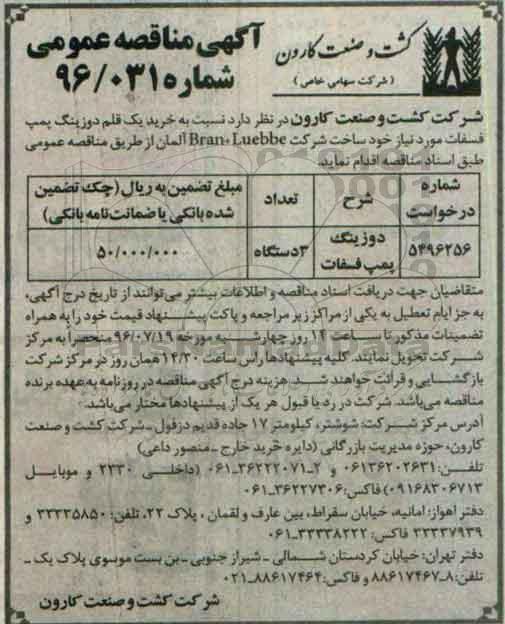 آگهی مناقصه عمومی
شماره ۹۶/۰۳۱
کشت و صنعت کارون
(شرکت سهامی خاص)
شرکت کشت و صنعت کارون در نظر دارد نسبت به خرید یک قلم دوزینگ پمپ
فسفات مورد نیاز خود ساخت شرکت Bran+Luebbe آلمان از طریق مناقصه عمومی
طبق اسناد مناقصه اقدام نماید.
شماره درخواست | شرح | تعداد | مبلغ تضمین به ریال (چک تضمین شده بانکی یا ضمانت‌نامه بانکی)
۵۴۹۶۲۵۶ | دوزینگ پمپ فسفات | ۳ دستگاه | ۵۰/۰۰۰/۰۰۰
متقاضیان جهت دریافت اسناد مناقصه و اطلاعات بیشتر می‌توانند از تاریخ درج آگهی،
به جز ایام تعطیل به یکی از مراکز زیر مراجعه و پاکت پیشنهاد قیمت خود را به همراه
تضمینات مذکور تا ساعت ۱۴ روز چهارشنبه مورخه ۹۶/۰۷/۱۹ منحصراً به مرکز
شرکت تحویل نمایند. کلیه پیشنهادها راس ساعت ۱۴/۳۰ همان روز در مرکز شرکت
بازگشایی و قرائت خواهند شد. هزینه درج آگهی مناقصه در روزنامه به عهده برنده
مناقصه می‌باشد. شرکت در رد یا قبول هر یک از پیشنهادها مختار می‌باشد.
آدرس مرکز شرکت: شوشتر، کیلومتر ۱۷ جاده قدیم دزفول - شرکت کشت و صنعت
کارون، حوزه مدیریت بازرگانی (دایره خرید خارج - منصور داعی)
تلفن: ۰۶۱۳۶۲۰۲۶۳۱ و ۲-۳۶۲۲۲۰۷۱-۰۶۱ (داخلی ۲۳۳۰ و موبایل
۰۹۱۶۸۳۰۶۷۱۳) فاکس: ۳۶۲۲۷۳۰۶-۰۶۱
دفتر اهواز: امانیه، خیابان سقراط، بین عارف و لقمان، پلاک ۲۲. تلفن: ۳۳۳۳۵۸۵۰ و
۳۳۳۳۷۹۳۹ فاکس: ۳۳۳۳۸۲۲۲-۰۶۱
دفتر تهران: خیابان کردستان شمالی - شیراز جنوبی - بن بست موسوی پلاک یک -
تلفن: ۸-۸۸۶۱۷۴۶۷ و فاکس: ۸۸۶۱۷۴۶۴-۰۲۱
شرکت کشت و صنعت کارون